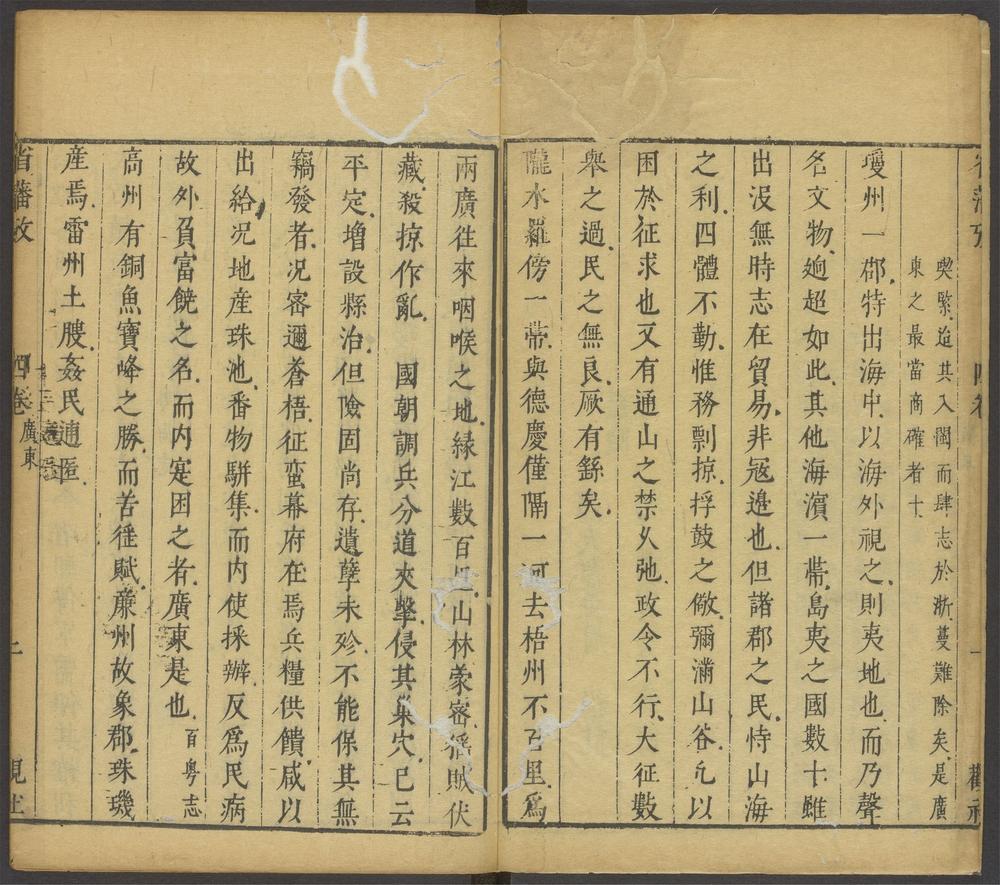 喫緊迨其入閩而肆志於浙蔓難除矣是廣
東之最當商確者十
瓊州一郡特出海中以海外視之則夷地也而乃聲
名文物逈超如此其他海濵一帶島夷之國數十雖
出沒無時志在貿易非冦邉也但諸郡之民恃山海
之利四體不勤惟務剽掠捊鼓之儆彌滿山谷凢以
困於征求也又有通山之禁乆弛政令不行大征數
舉之過民之無良厥有繇矣
隴水羅傍一帶與德慶僅隔一河去梧州不百里爲
兩廣往來咽喉之地縁江數百里山林蒙密猺賊伏
藏殺掠作亂 國朝調兵分道夾擊侵其巢穴已云
平定增設縣治但險固尚存遺孽未殄不能保其無
竊發者况密邇蒼梧征蛮幕府在焉兵糧供饋咸以
出給况地産珠池番物駢集而内使採辦反爲民病
故外負冨饒之名而内寔困之者廣東是也 百粤志
高州有銅魚寶峰之勝而苦徭賦廉州故象郡珠璣
産焉雷州土腴姦民逋匿
省藩攷 四卷 廣東